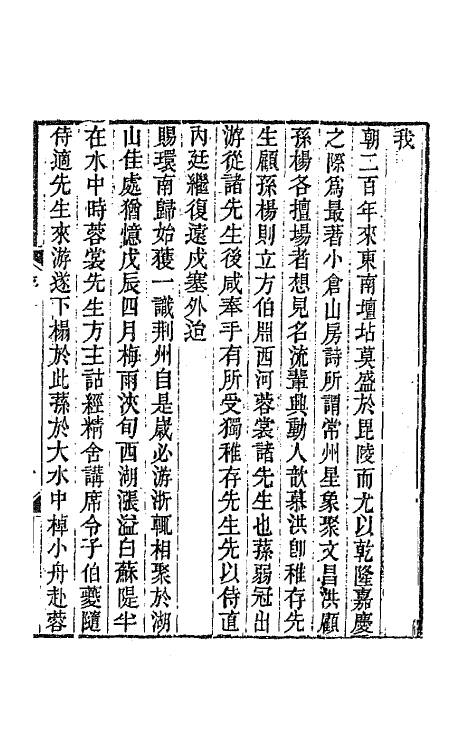 我
朝二百年來東南壇坫莫盛於毘陵而尤以乾隆嘉慶
之際爲最著小倉山房詩所謂常州星象聚文昌洪顧
孫楊各擅場者想見名流輩興動人歆慕洪卽稚存先
生顧孫楊則立方伯淵西河蓉裳諸先生也蓀弱冠出
游從諸先生後咸奉手有所受獨稚存先生先以侍直
內廷繼復遠戍塞外迨
賜環南歸始獲一識荆州自是嵗必游浙輒相聚於湖
山佳處猶憶戊辰四月梅雨浹旬西湖漲溢白蘇隄半
在水中時蓉裳先生方主詁經精舍講席令子伯夔隨
侍適先生來游遂下榻於此蓀於大水中棹小舟赴蓉
序